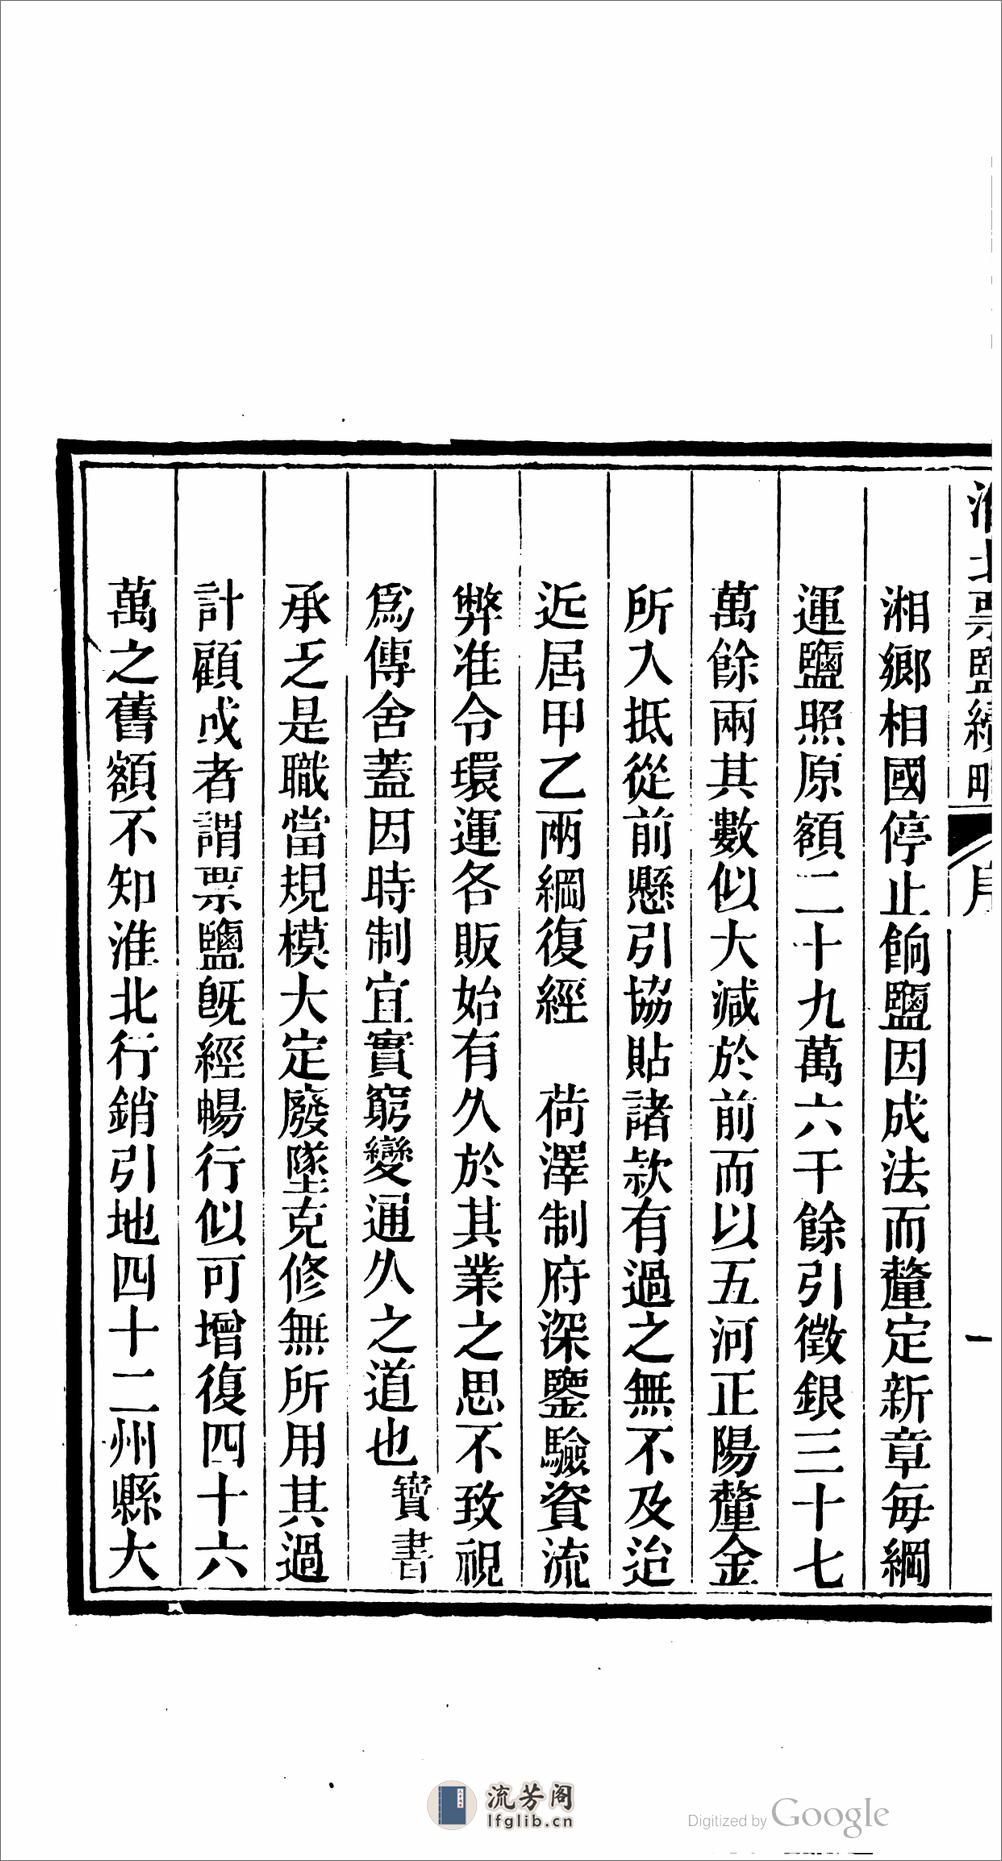 淮北票鹽續略 序 一
湘鄉相國停止餉鹽因成法而釐定新章每綱
運鹽照原額二十九萬六千餘引徵銀三十七
萬餘兩其數似大減於前而以五河正陽釐金
所入抵從前懸引協貼諸款有過之無不及迨
近居甲乙兩綱復經 荷澤制府深鑒驗資流
弊准令環運各販始有久於其業之思不致視
爲傳舍蓋因時制宜實窮變通久之道也寶書
承乏是職當規模大定廢墜克修無所用其過
計顧或者謂票鹽旣經暢行似可增復四十六
萬之舊額不知淮北行銷引地四十二州縣大
流芳阁
lfglib.cn
Digitized by Google